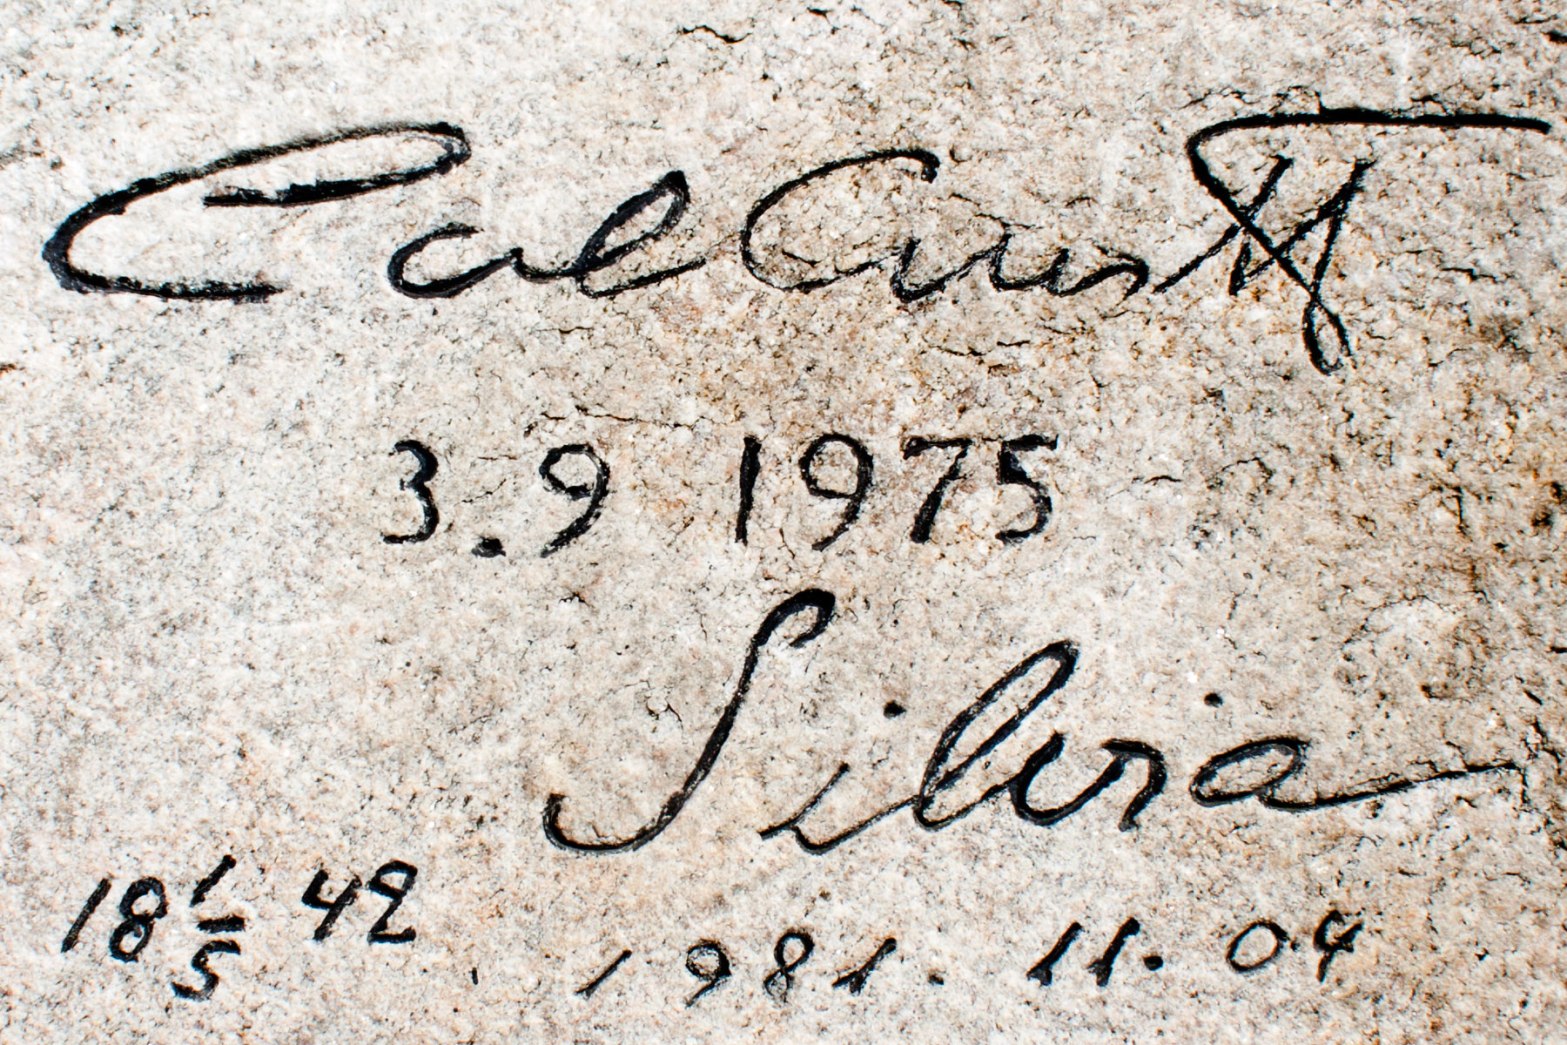 Carl Gustaf
3.9 1975
Silvia
18 1/5 42
1981. 11. 04